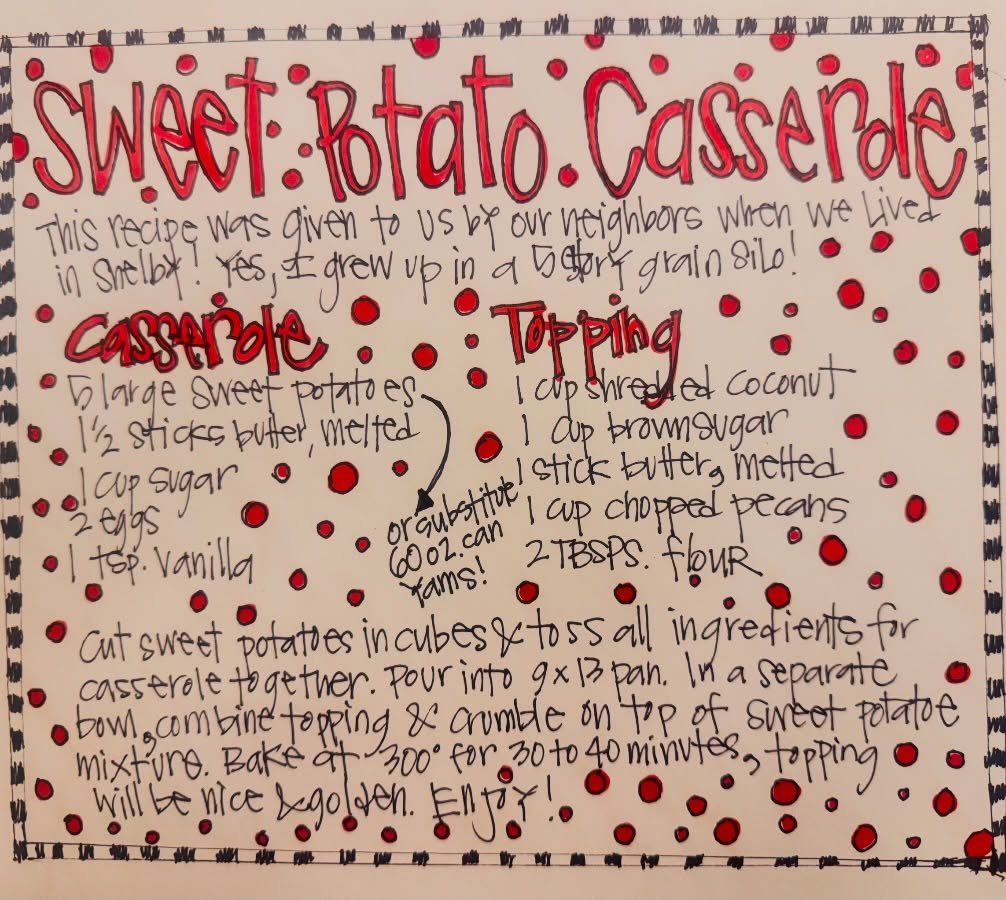 Sweet Potato Casserole
This recipe was given to us by our neighbors when we lived
in Shelby! Yes, I grew up in a 5 story grain silo!
Casserole
5 large sweet potatoes
1 1/2 sticks butter, melted
1 cup sugar
2 eggs
1 tsp. vanilla
or substitute
60 oz. can
yams!
Topping
1 cup shredded coconut
1 cup brown sugar
1 stick butter, melted
1 cup chopped pecans
2 TBSPS. flour
Cut sweet potatoes in cubes & toss all ingredients for
casserole together. Pour into 9x13 pan. In a separate
bowl, combine topping & crumble on top of sweet potatoe
mixture. Bake at 300° for 30 to 40 minutes, topping
will be nice & golden. Enjoy!